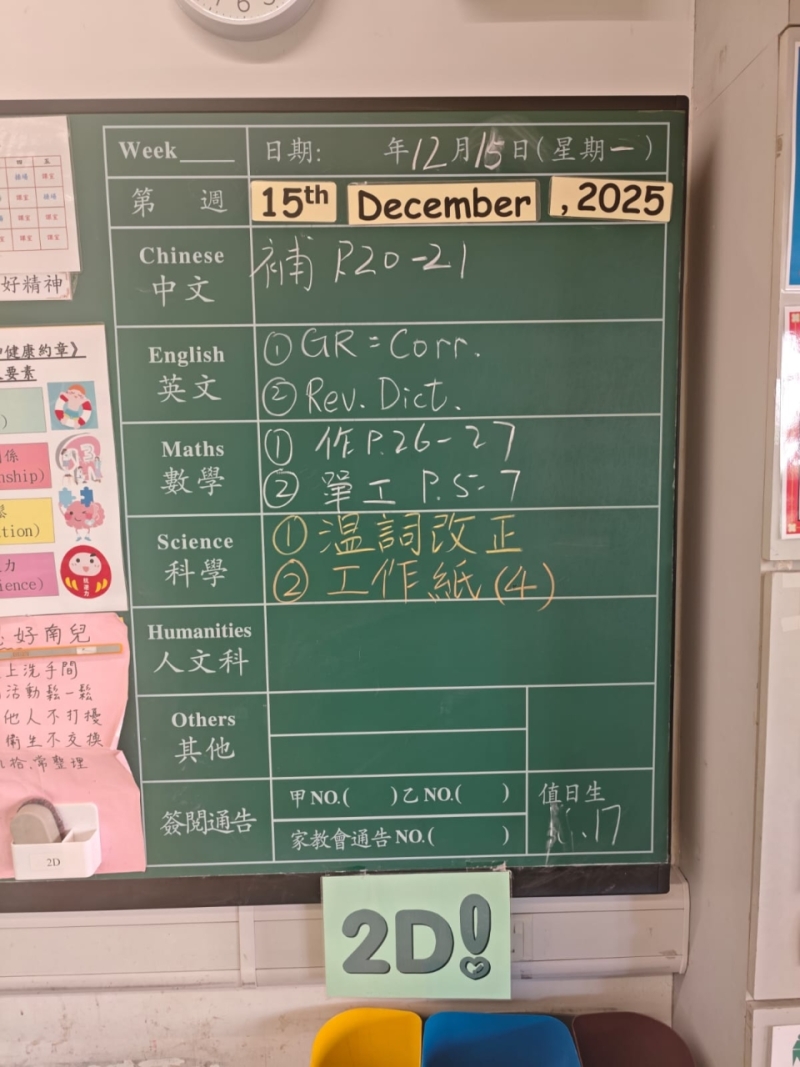 Week____ 日期: 年12月15日(星期一)
第 週 15th December , 2025
Chinese 中文
補 P.20-21
English 英文
① GR = Corr.
② Rev. Dict.
Maths 數學
① 作 P.26-27
② 單工 P.5-7
Science 科學
① 溫詞改正
② 工作紙(4)
Humanities 人文科
Others 其他
簽閱通告
甲NO.( )乙NO.( )
家教會通告NO.( )
值日生
17
2D!
好精神
健康約章》
要素
係
nship)
tion)
力
ience)
好南兒
上洗手間
活動鬆一鬆
他人不打擾
衛生不交換
拾、常整理
2D